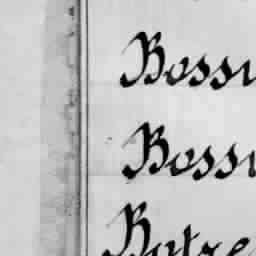 Bossi
Bossi
Batre